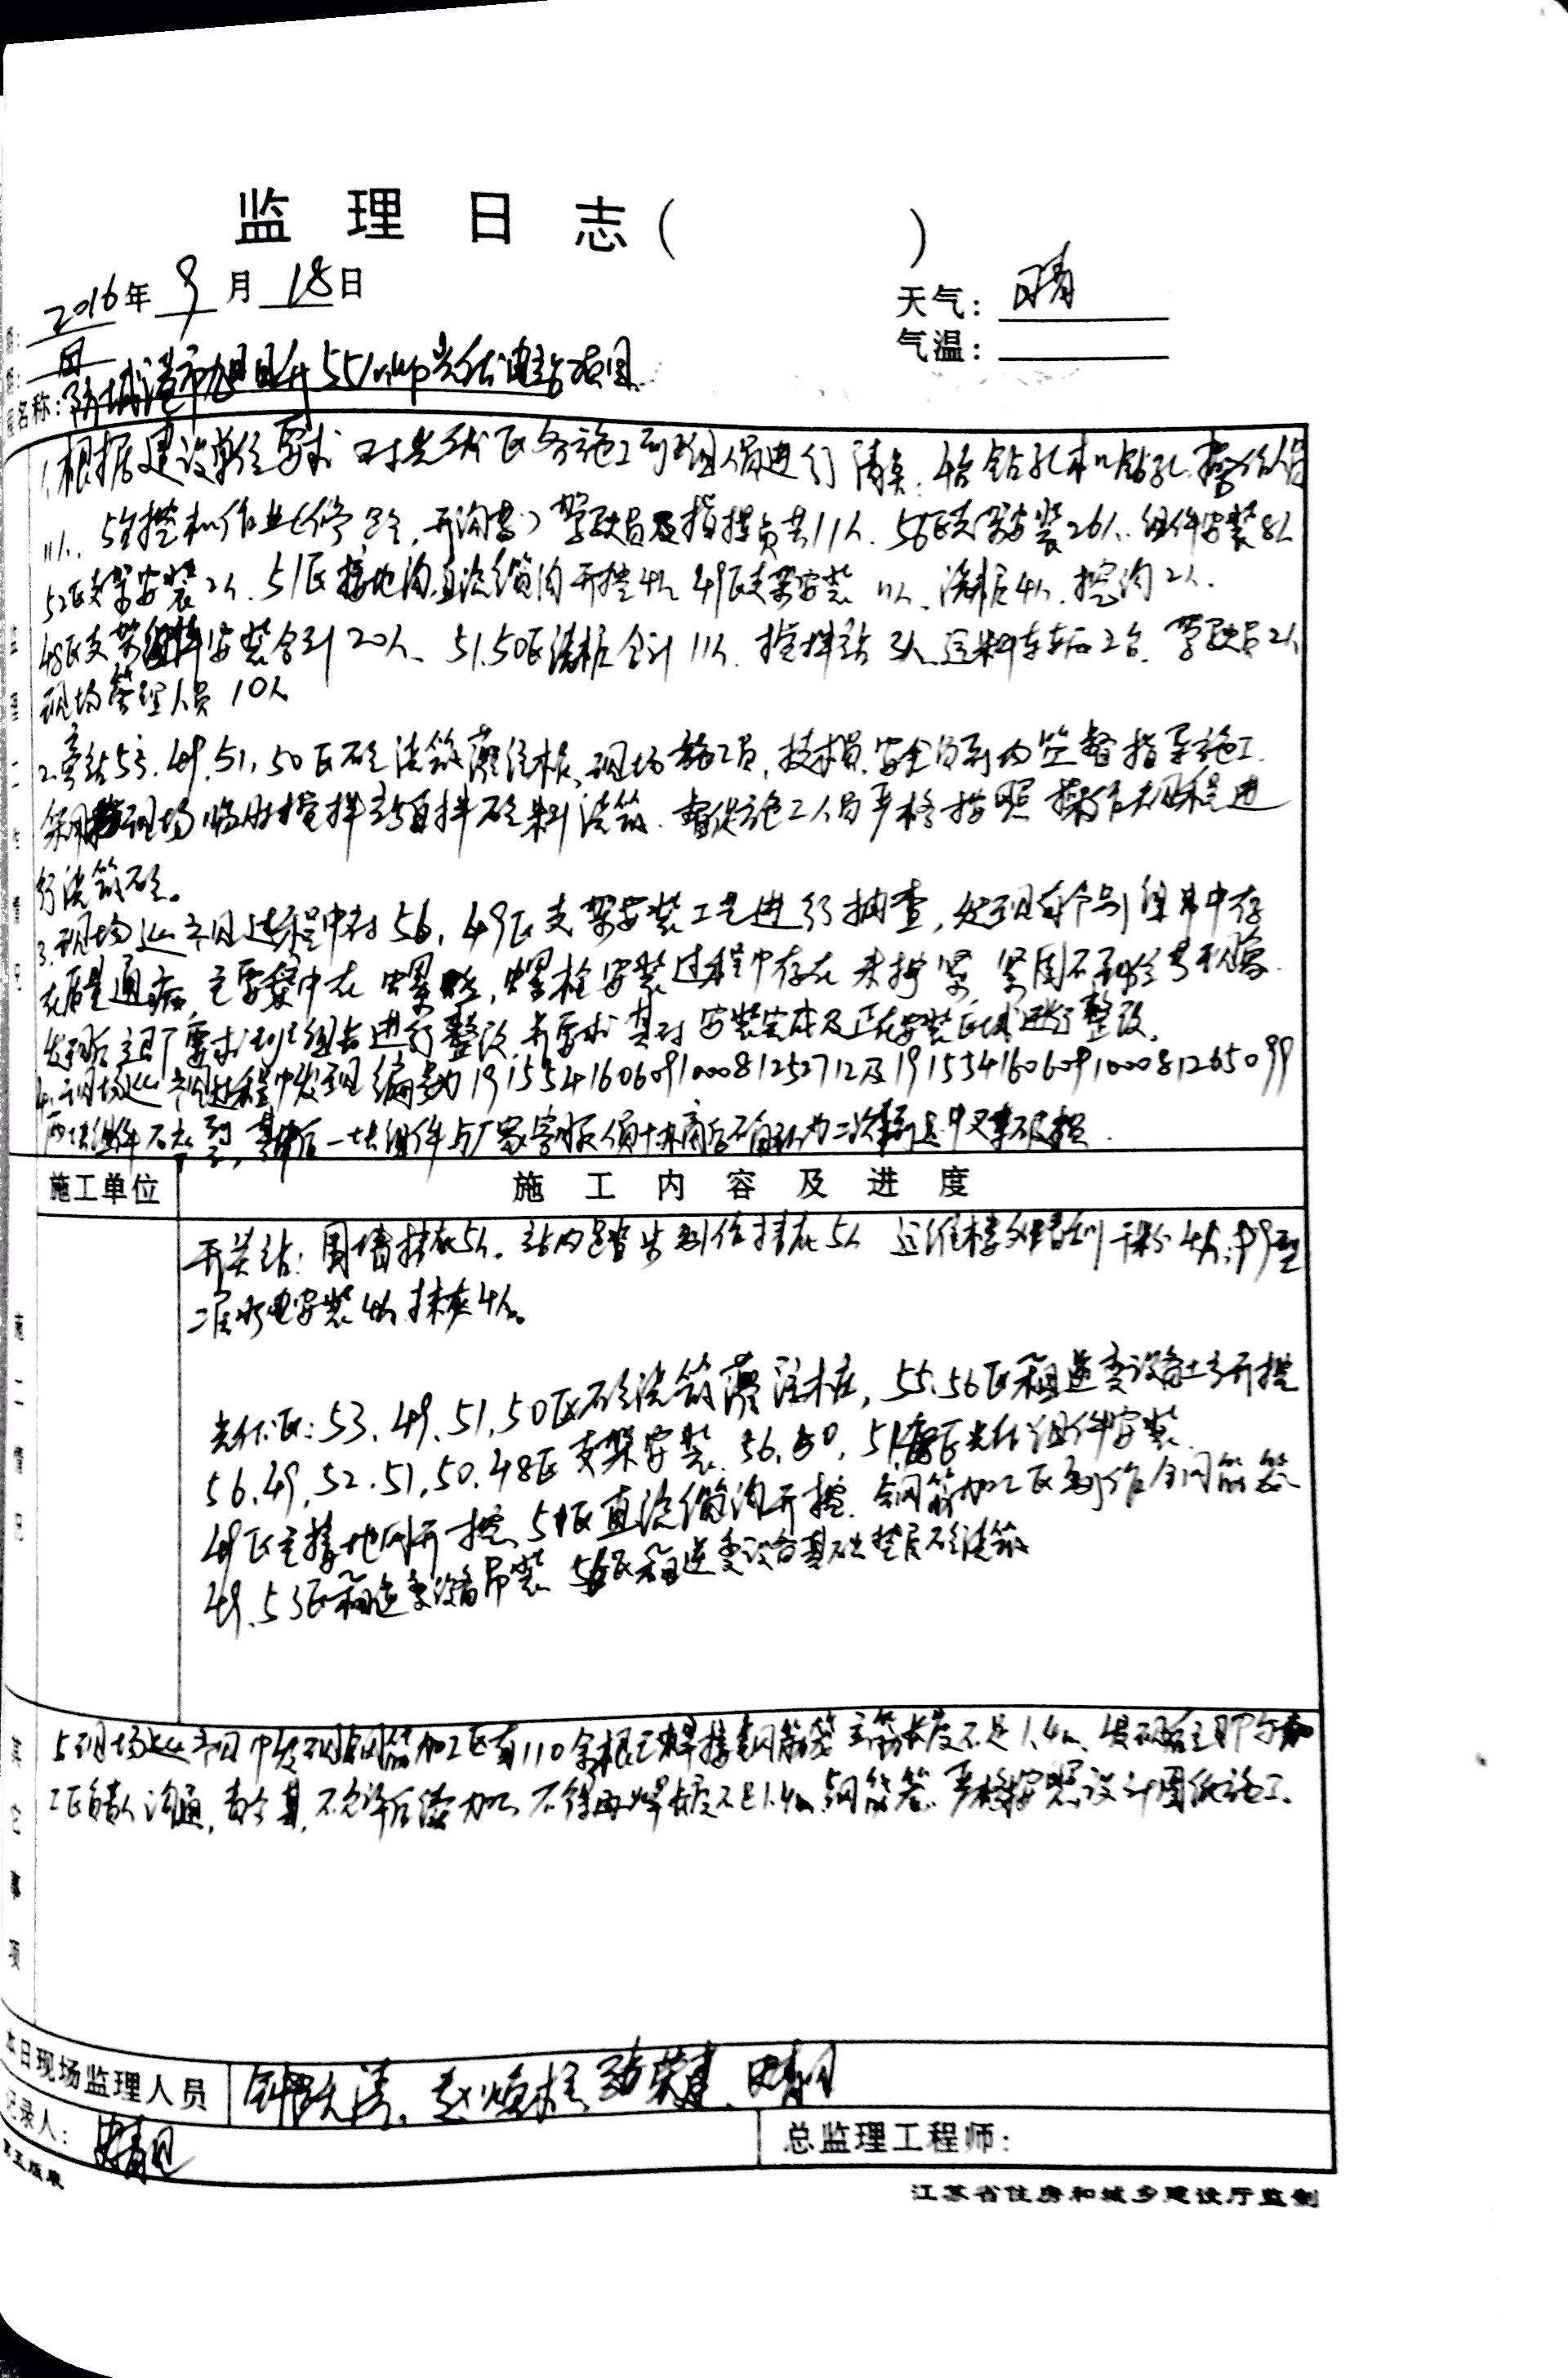 监理日志( )
2016年 9月 18日
天气: 晴
气温:
名称: 防城港市旭日升55MWp光伏电站项目
1、根据建设单位要求对光伏区各施工班组人员进行清点: 4台钻孔机钻孔,操作人员
11人、5台挖机作业,开沟,驾驶员及指挥员共11人、56区支架安装26人、组件安装8人
52区支架安装2人、51区接地沟、直流缆沟开挖4人、49区支架安装11人、浇桩4人、挖沟2人、
48区支架组件安装合计20人、51.50区浇桩合计11人、搅拌站3人、运料车辆2台、驾驶员2人
现场管理人员10人
2、旁站53、49、51、50区砼浇筑灌注桩、现场施工员,技术员、安全员到场监督指导施工、
采用现场临时搅拌站自拌砼料浇筑、督促施工人员严格按照操作规程进
行浇筑砼。
3、现场巡视过程中对56、49区支架安装工艺进行抽查,发现有个别组串中存
在质量通病,主要集中在螺栓安装过程中存在未拧紧,紧固不到位等现象
发现后立即要求班组长进行整改,并要求其对安装完成及正在安装区域进行整改。
4、现场巡视过程中发现编号为191554160609100081252712及191554160609100081265099
两块组件,其中后一块组件与厂家客服人员协商后确认为二次转运中破损
施工单位
施工内容及进度
开关站: 围墙抹灰5人、站内踏步制作抹灰5人 运维楼外墙刮干粉4人,
二层水电安装4人 抹灰4人。
光伏区: 53、49、51、50区砼浇筑灌注桩,55、56区箱逆变设备土方开挖
56、49、52、51、50、48区支架安装、56、50、51区光伏组件安装
49区主接地网开挖、51区直流缆沟开挖、钢筋加工区制作钢筋笼
49、53区箱逆变设备吊装 56区箱逆变设备基础垫层砼浇筑
其它事项
5、现场巡视中发现钢筋加工区有110余根已焊接钢筋笼主筋长度不足1.4m、发现后立即与加
工区负责人沟通,责令其不允许后续加工 不得再焊长度不足1.4m钢筋笼、严格按照设计图纸施工、
本日现场监理人员
记录人:
总监理工程师:
江苏省住房和城乡建设厅监制